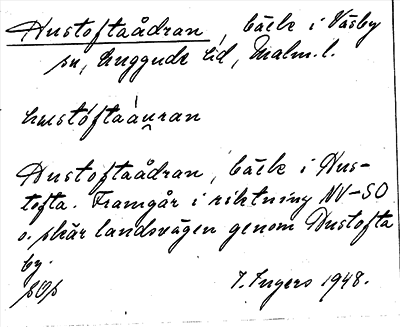 Hustoftaådran, bäck i Väsby
sn, Luggude hd, Malm. l.
hustóftaàuran
Hustoftaådran, bäck i Hus-
tofta. Framgår i riktning NV-SO
o. skär landsvägen genom Hustofta
by.
I. Ingers 1948.